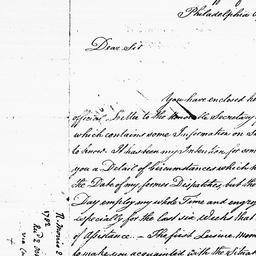 Philadelphia
Dear Sir
You have enclosed
official Letter to the Honorable Secretary
which contains some Information on
to Answer. It has been my Intention for some
you a Detail of Circumstances which
the Date of my former Dispatches, but the
Day employ my whole Time and
especially for the last six Weeks that
of Assistance. — The first Leisure Mom
to make you acquainted with the Situat
R. Morris
1782